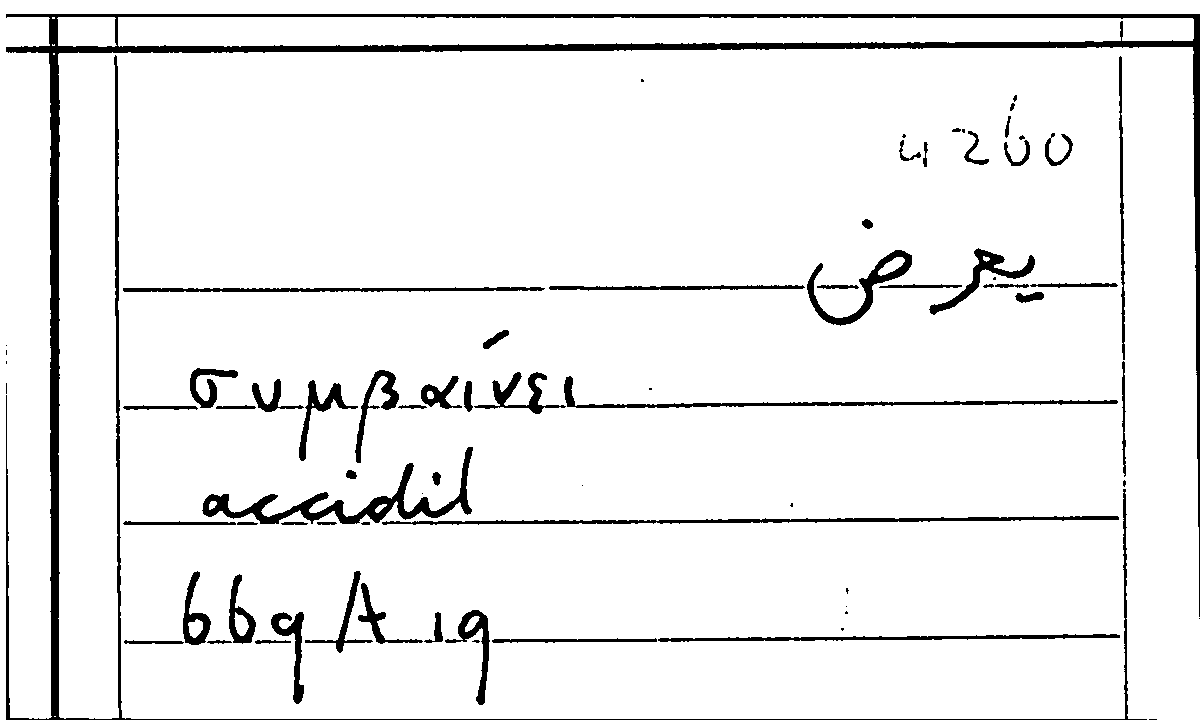 4260
يعرض
συμβαίνει
accidit
669 A 19